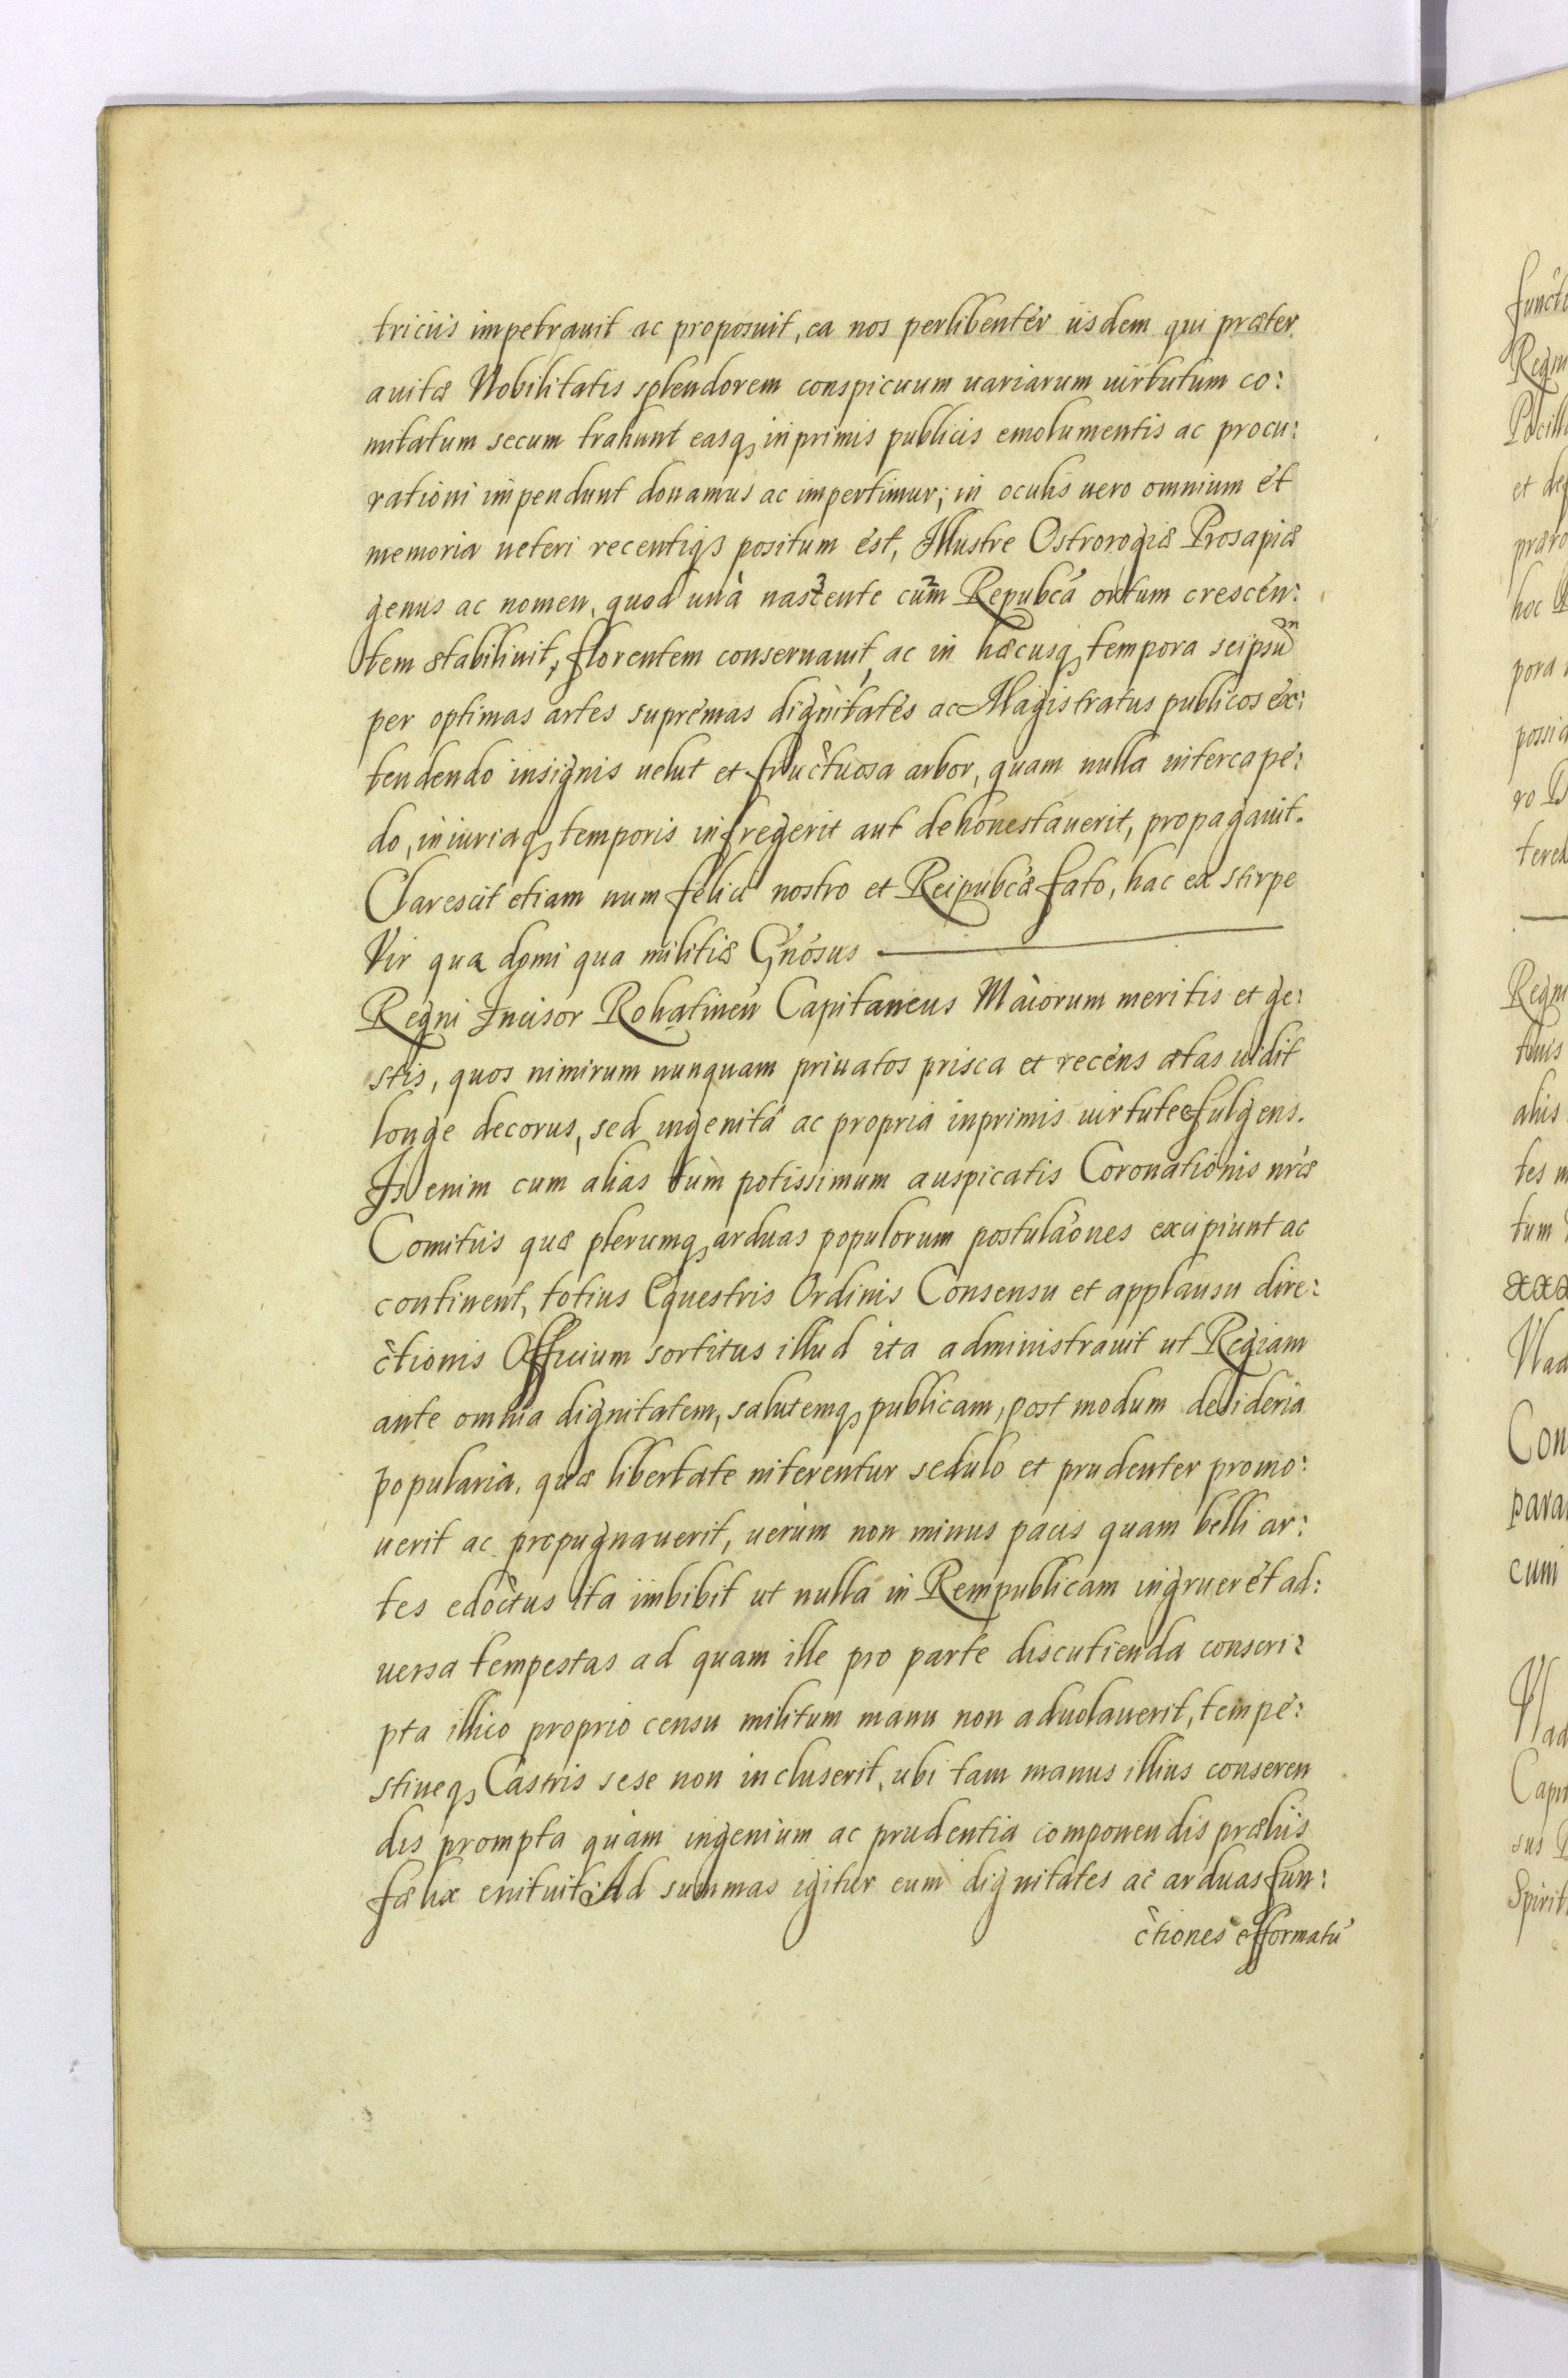 triciis impetrauit ac proposuit, ea nos perlibentér iisdem qui præter
auitæ Nobilitatis splendorem conspicuum uariarum uirtutum co:
mitatum secum trahunt easq₃ inprimis publicis emolumentis ac procu:
rationi impendunt donamus ac impertimur; in oculis uero omnium ét
memoria ueteri recentiq₃ positum ést, Illustre Ostrorogiæ Prosapiæ
genus ac nomen, quod unà nascente cum Repubcá ortum crescén:
tem stabiliuit, florentem conseruauit, ac in hæcusq₃ tempora seipsum
per optimas artes suprémas dignitatés ac Magistratus publicos éx:
tendendo insignis uelut et fructuosa arbor, quam nulla intercapé:
do, iniuriaq₃ temporis infregerit aut dehonestauerit, propagauit.
Clarescit etiam num felici nostro et Reipubcæ fato, hac ex stirpe
Vir qua domi qua militiæ Gnósus
Regni Incisor Rohatineń Capitaneus Maiorum meritis et ge:
stis, quos nimirum nunquam priuatos prisca et recéns ætas uidit
longe decorus, sed ingenitâ ac propria inprimis uirtute effulgens.
Is enim cum alias tùm potissimum auspicatis Coronationis nr̃æ
Comitiis quæ plerumq₃ arduas populorum postulaões excipiunt ac
continent, totius Equestris Ordinis Consensu et applausu dire:
ctionis Officium sortitus illud ita administrauit ut Regiam
ante omnia dignitatem, salutemq₃ publicam, post modum desideria
popularia, quæ libertate niterentur sedulo et prudenter promo:
uerit ac propugnauerit, uerùm non minus pacis quam belli ar:
tes edoctus ita imbibit ut nulla in Rempublicam ingruerét ad:
uersa tempestas ad quam ille pro parte discutienda conscri:
pta illico proprio censu militum manu non aduolauerit, tempé:
stiueq₃ Castris sese non incluserit, ubi tam manus illius conseren
dis prompta quàm ingenium ac prudentia componendis præliis
fælix enituit. Ad summas igitur eum dignitates ac arduas fun:
ctiones efformatũ